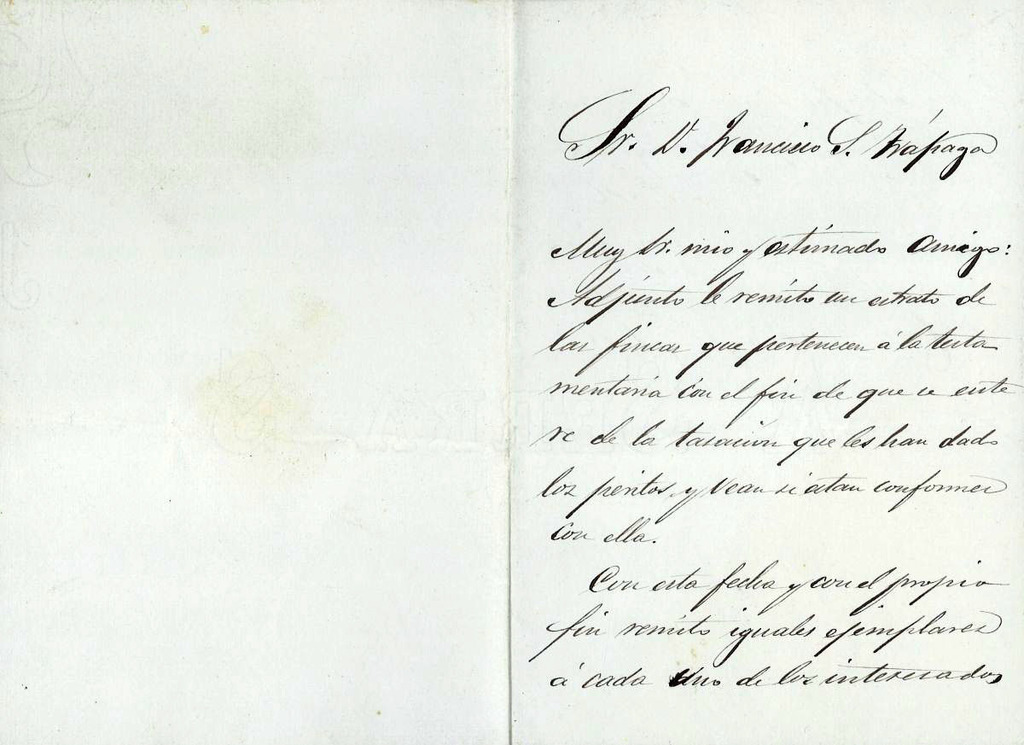 Sr. D. Francisco S. Trápaga
Muy Sr. mio y estimado amigo:
Adjunto le remito un estrato de
las fincas que pertenecen á la testa
mentaria con el fin de que se ente
re de la tasacion que les han dado
los peritos, y vean si estan conformes
con ella.
Con esta fecha y con el propio
fin remito iguales ejemplares
á cada uno de los interesados